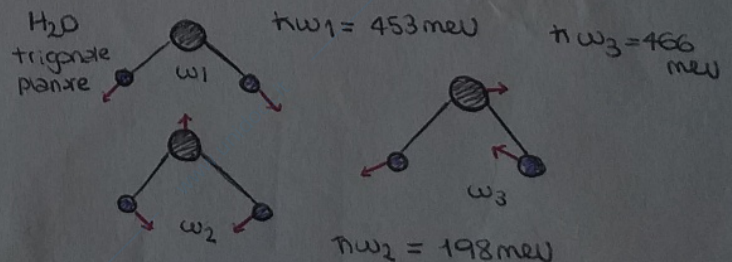 H₂O
trigonale
planare
ω1
ħω1 = 453 meV
ħω3 = 466
meV
ω2
ω3
ħω2 = 198 meV